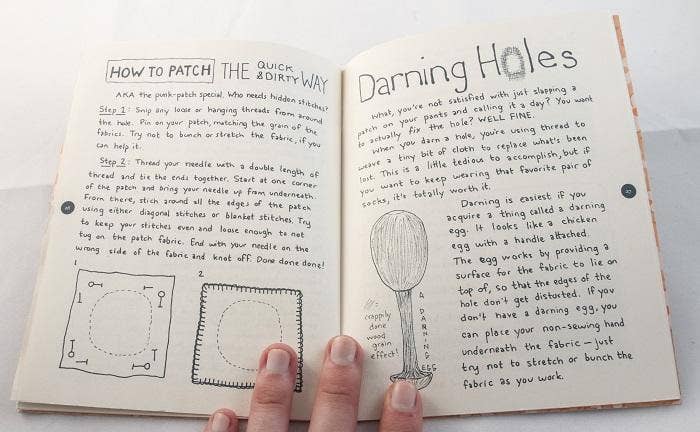 HOW TO PATCH THE QUICK & DIRTY WAY
AKA the punk-patch special. Who needs hidden stitches?
Step 1: Snip any loose or hanging threads from around
the hole. Pin on your patch, matching the grain of the
fabrics. Try not to bunch or stretch the fabric, if you
can help it.
Step 2: Thread your needle with a double length of
thread and tie the ends together. Start at one corner
of the patch and bring your needle up from underneath.
From there, stick around all the edges of the patch
using either diagonal stitches or blanket stitches. Try
to keep your stitches even and loose enough to not
tug on the patch fabric. End with your needle on the
wrong side of the fabric and knot off. Done done done!
1
2
Darning Holes
What, you're not satisfied with just slapping a
patch on your pants and calling it a day? You want
to actually fix the hole? WELL FINE.
When you darn a hole, you're using thread to
weave a tiny bit of cloth to replace what's been
lost. This is a little tedious to accomplish, but if
you want to keep wearing that favorite pair of
socks, it's totally worth it.
Darning is easiest if you
acquire a thing called a darning
egg. It looks like a chicken
egg with a handle attached.
The egg works by providing a
surface for the fabric to lie on
top of, so that the edges of the
hole don't get distorted. If you
don't have a darning egg, you
can place your non-sewing hand
underneath the fabric – just
try not to stretch or bunch the
fabric as you work.
= crappily
done
wood
grain
effect!
A DARNING EGG